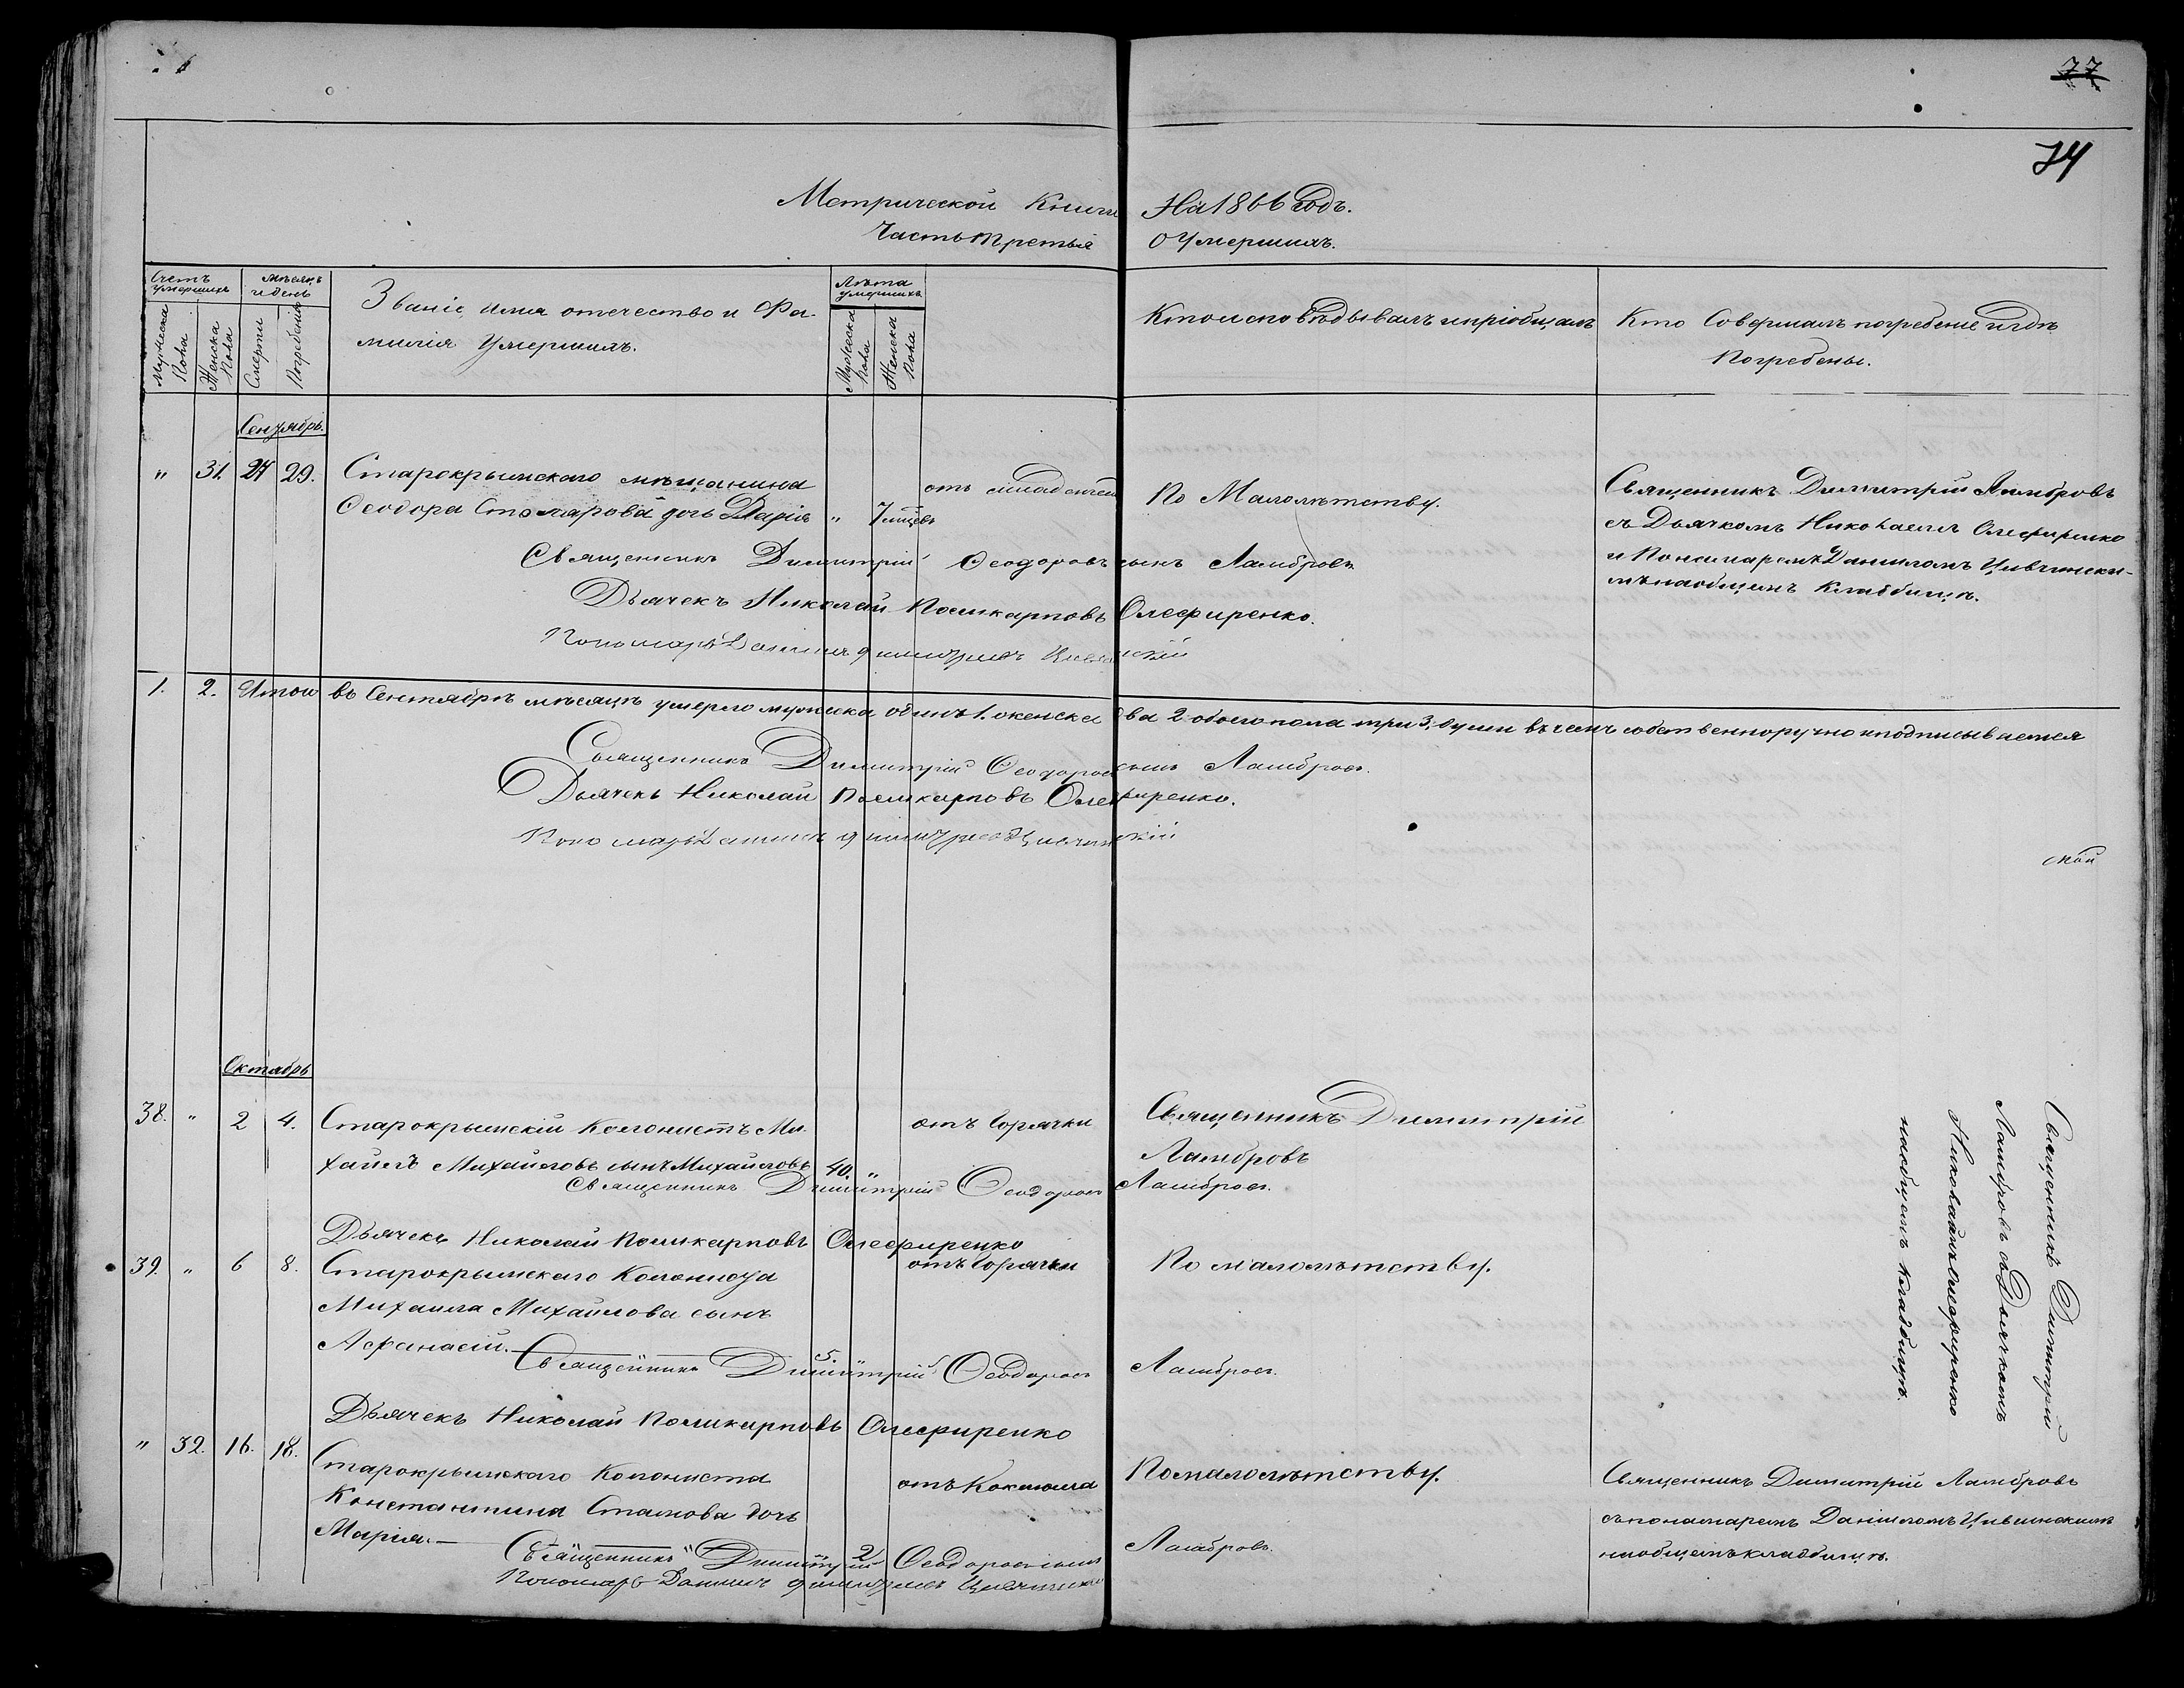 77
74
Метрической Книги На 1866 Годъ.
Часть третья О Умершихъ.
Счетъ умершихъ
Мужеска пола
Женска пола
мѣсяцъ и день
Смерти
Погребенія
Званіе, имя отечество и Фа-
милія Умершихъ.
Лѣта умершихъ
Мужеска пола
Женска пола
Кто исповѣдывалъ и пріобщалъ
Кто Совершалъ погребеніе и гдѣ
Погребены.
Сентябрь.
" 31. 27 29. Старокрымскаго мѣщанина от младенчес По Малолѣтству. Священникъ Димитрій Ламбровъ
Ѳеодора Столярова дочь Дарія " 7 мѣцевъ съ Дьячкомъ Николаемъ Олефиренко
и Пономаремъ Даниломъ Цивчински-
мъ на общемъ Кладбищѣ.
Священникъ Димитрій Ѳеодоровъ сынъ Ламбровъ
Дьячекъ Николай Поликарповъ Олефиренко.
Пономарь Даниил Димитриев
1. 2. Итого въ Сентябрѣ мѣсяцѣ умерло мужеска одинъ 1. женска два 2 обоего пола три 3, души въ чемъ собственноручно и подписываемся
Священникъ Димитрій Ѳеодоровъ сынъ Ламбровъ.
Дьячекъ Николай Поликарповъ Олефиренко.
Пономарь Даниил Димитриев
Октябрь
38. " 2 4. Старокрымскій Колонистъ Ми- отъ Горячки Священникъ Димитрій
хаилъ Михайловъ сынъ Михайловъ 40. " Ламбровъ
Священникъ Димитрій Ѳеодоровъ Ламбровъ.
Дьячекъ Николай Поликарповъ Олефиренко
39. " 6 8. Старокрымскаго Колониста отъ Горячки По малолѣтству.
Михаила Михайлова сынъ
Афанасій. 5.
Священникъ Димитрій Ѳеодоровъ Ламбровъ.
Дьячекъ Николай Поликарповъ Олефиренко
Священникъ Димитрій
Ламбровъ съ Дьячкомъ
Николаемъ Олефиренко
на общемъ Кладбищѣ.
" 32. 16. 18. Старокрымскаго Колониста отъ Коклюша По малолѣтству. Священникъ Димитрій Ламбровъ
Константина Стамова дочь съ пономаремъ Даниломъ Цивчинскимъ
Марія. 2 на общемъ кладбищѣ.
Священникъ Димитрій Ѳеодоровъ сынъ Ламбровъ.
Пономарь Даниил Димитриев